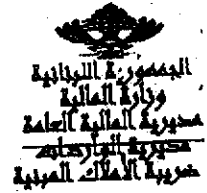 الجمهورية اللبنانية
وزارة المالية
مديرية المالية العامة
مديرية الواردات
ضريبة الأملاك المبنية